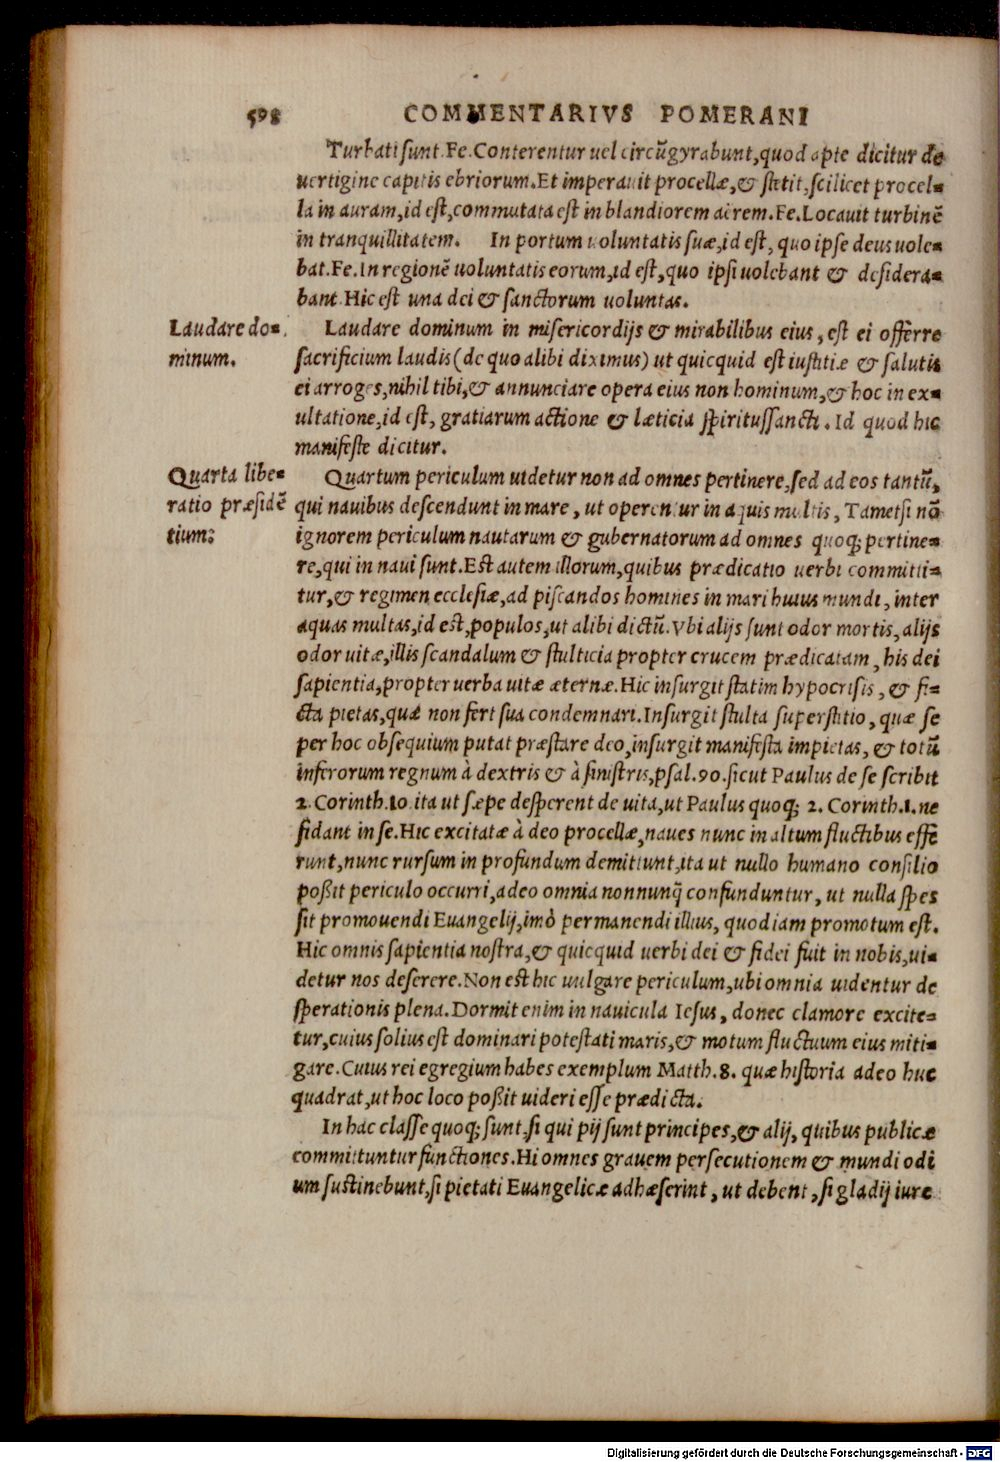 598 COMMENTARIVS POMERANI
Turbati sunt. Fe. Conterentur uel circũgyrabunt, quod apte dicitur de
uertigine capitis ebriorum. Et imperauit procellæ, & stetit, scilicet procel-
la in auram, id est, commutata est in blandiorem aërem. Fe. Locauit turbinẽ
in tranquillitatem. In portum uoluntatis suæ, id est, quo ipse deus uole-
bat. Fe. In regionẽ uoluntatis eorum, id est, quo ipsi uolebant & desidera-
bant. Hic est una dei & sanctorum uoluntas.
Laudare do-
minum.
Laudare dominum in misericordijs & mirabilibus eius, est ei offerre
sacrificium laudis (de quo alibi diximus) ut quicquid est iustitiæ & salutis
ei arroges, nihil tibi, & annunciare opera eius non hominum, & hoc in ex-
ultatione, id est, gratiarum actione & læticia spiritussancti. Id quod hic
manifeste dicitur.
Quarta libe-
ratio præsidẽ
tium:
Quartum periculum uidetur non ad omnes pertinere, sed ad eos tantũ,
qui nauibus descendunt in mare, ut operentur in aquis multis, Tametsi nõ
ignorem periculum nautarum & gubernatorum ad omnes quoq; pertine-
re, qui in naui sunt. Est autem illorum, quibus prædicatio uerbi committi-
tur, & regimen ecclesiæ, ad piscandos homines in mari huius mundi, inter
aquas multas, id est, populos, ut alibi dictũ. Vbi alijs sunt odor mortis, alijs
odor uitæ, illis scandalum & stulticia propter crucem prædicatam, his dei
sapientia, propter uerba uitæ æternæ. Hic insurgit statim hypocrisis, & fi-
cta pietas, quæ non fert sua condemnari. Insurgit stulta superstitio, quæ se
per hoc obsequium putat præstare deo, insurgit manifesta impietas, & totũ
inferorum regnum à dextris & à sinistris, psal. 90. sicut Paulus de se scribit
2. Corinth. 10. ita ut sæpe desperent de uita, ut Paulus quoq; 2. Corinth. 1. ne
fidant in se. Hic excitatæ à deo procellæ, naues nunc in altum fluctibus effe
runt, nunc rursum in profundum demittunt, ita ut nullo humano consilio
poßit periculo occurri, adeo omnia nonnunq̃ confunduntur, ut nulla spes
sit promouendi Euangelij, imò permanendi illius, quod iam promotum est.
Hic omnis sapientia nostra, & quicquid uerbi dei & fidei fuit in nobis, ui-
detur nos deserere. Non est hic uulgare periculum, ubi omnia uidentur de
sperationis plena. Dormit enim in nauicula Iesus, donec clamore excite-
tur, cuius solius est dominari potestati maris, & motum fluctuum eius miti-
gare. Cuius rei egregium habes exemplum Matth. 8. quæ historia adeo huc
quadrat, ut hoc loco poßit uideri esse prædicta.
In hac classe quoq; sunt, si qui pij sunt principes, & alij, quibus publicæ
committuntur functiones. Hi omnes grauem persecutionem & mundi odi
um sustinebunt, si pietati Euangelicæ adhæserint, ut debent, si gladij iure
Digitalisierung gefördert durch die Deutsche Forschungsgemeinschaft - DFG